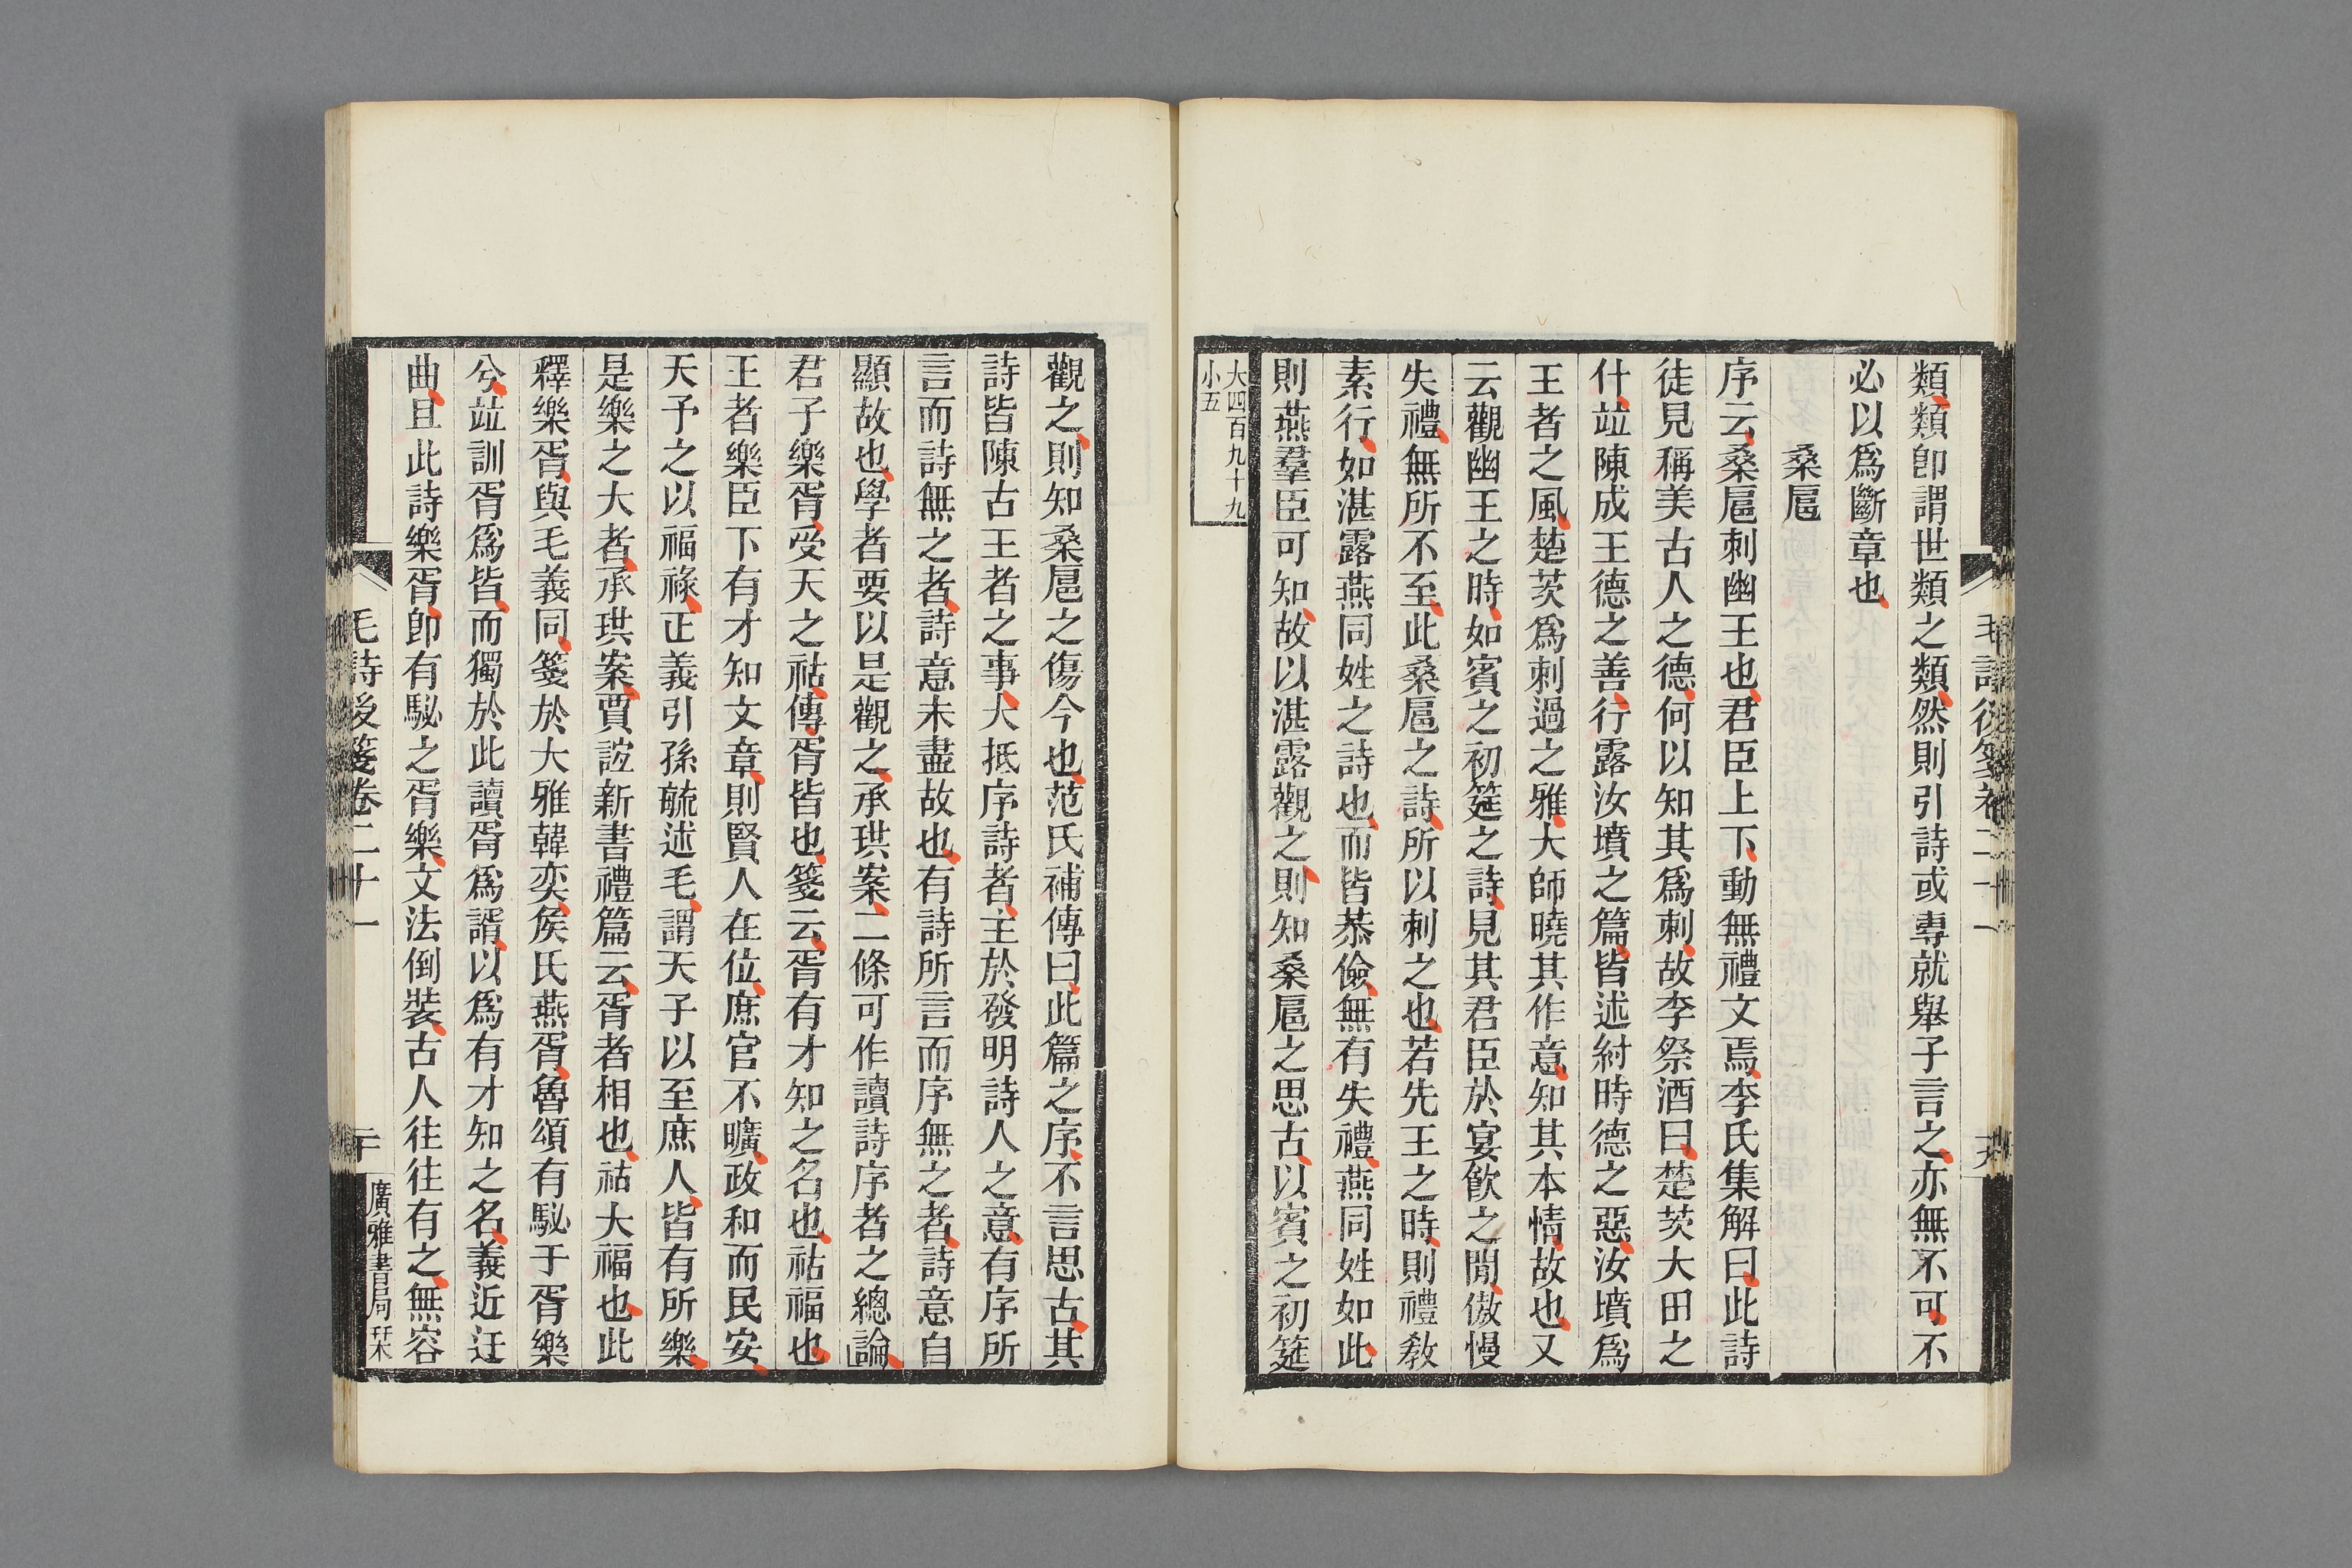 類類卽謂世類之類然則引詩或專就舉子言之亦無不可不
必以爲斷章也
桑扈
序云桑扈刺幽王也君臣上下動無禮文焉李氏集解曰此詩
徒見稱美古人之德何以知其爲刺故李祭酒曰楚茨大田之
什竝陳成王德之善行露汝墳之篇皆述紂時德之惡汝墳爲
王者之風楚茨爲刺過之雅大師曉其作意知其本情故也又
云觀幽王之時如賓之初筵之詩見其君臣於宴飮之閒傲慢
失禮無所不至此桑扈之詩所以刺之也若先王之時則禮敎
素行如湛露燕同姓之詩也而皆恭儉無有失禮燕同姓如此
則燕羣臣可知故以湛露觀之則知桑扈之思古以賓之初筵
大四百九十九
小五
觀之則知桑扈之傷今也范氏補傳曰此篇之序不言思古其
詩皆陳古王者之事大抵序詩者主於發明詩人之意有序所
言而詩無之者詩意未盡故也有詩所言而序無之者詩意自
顯故也學者要以是觀之承珙案二條可作讀詩序者之總論
君子樂胥受天之祜傳胥皆也箋云胥有才知之名也祜福也
王者樂臣下有才知文章則賢人在位庶官不曠政和而民安
天予之以福祿正義引孫毓述毛謂天子以至庶人皆有所樂
是樂之大者承珙案賈誼新書禮篇云胥者相也祜大福也此
釋樂胥與毛義同箋於大雅韓奕矦氏燕胥魯頌有駜于胥樂
兮竝訓胥爲皆而獨於此讀胥爲諝以爲有才知之名義近迂
曲且此詩樂胥卽有駜之胥樂文法倒裝古人往往有之無容
毛詩後箋卷二十一
二十
廣雅書局栞